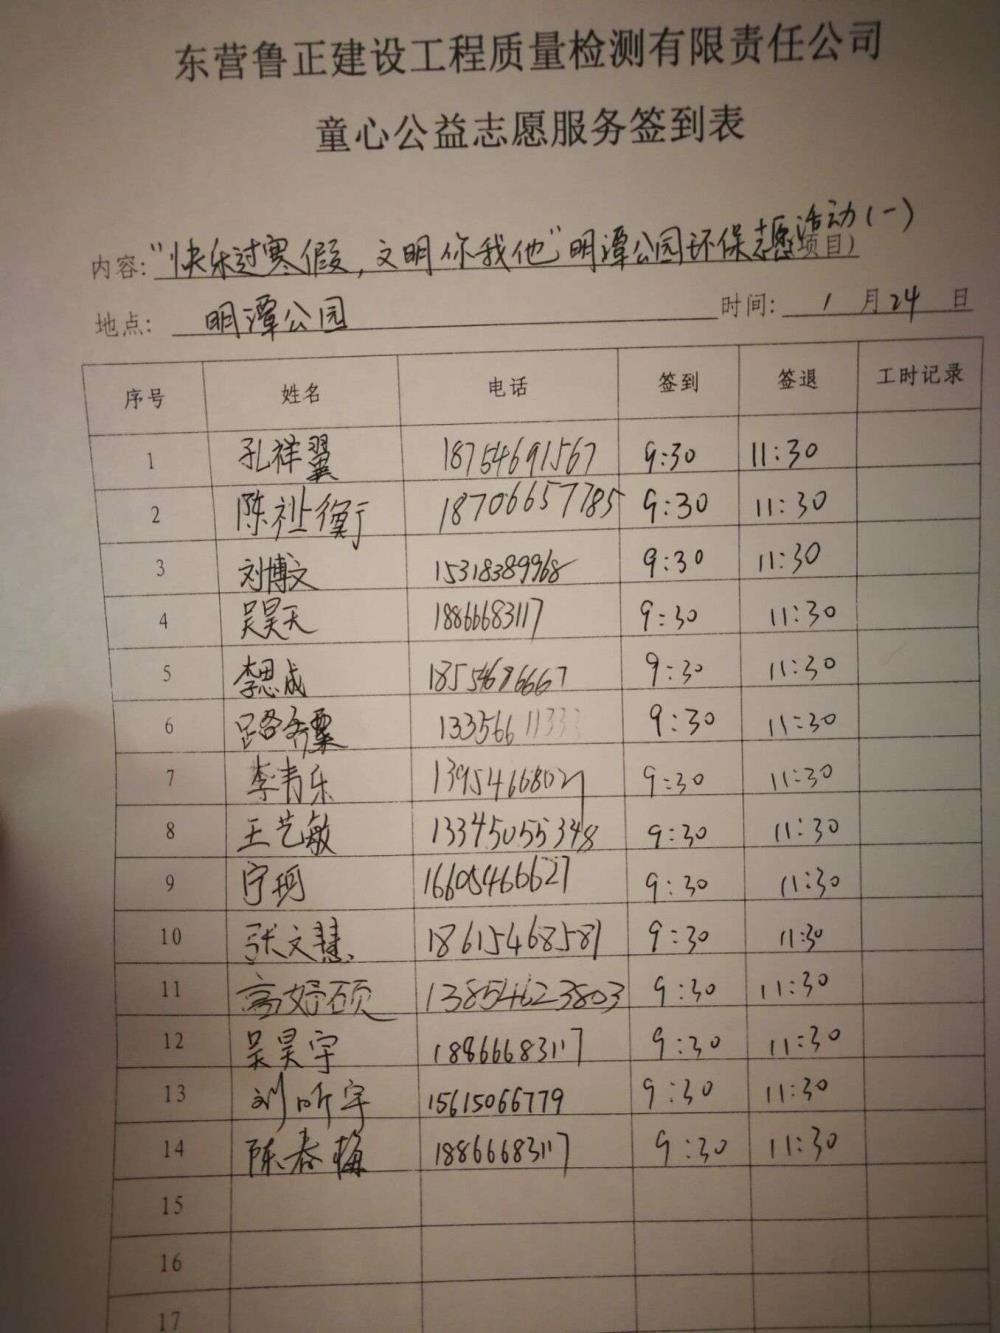 东营鲁正建设工程质量检测有限责任公司
童心公益志愿服务签到表
内容:"快乐过寒假,文明你我他"明潭公园环保志愿活动(一)项目)
地点: 明潭公园 时间: 1 月 24 日
序号 姓名 电话 签到 签退 工时记录
1 孔祥翼 18754691567 9:30 11:30
2 陈祉衡 18706657785 9:30 11:30
3 刘博文 15318389968 9:30 11:30
4 吴昊天 18866683117 9:30 11:30
5 李思成 18554686667 9:30 11:30
6 路 13356611333 9:30 11:30
7 李青乐 13954668021 9:30 11:30
8 王艺敏 13345055348 9:30 11:30
9 宁珂 16605466627 9:30 11:30
10 张文慧 18615468581 9:30 11:30
11 高妤硕 13854623803 9:30 11:30
12 吴昊宇 18866683117 9:30 11:30
13 刘昕宇 15615066779 9:30 11:30
14 陈春梅 18866683117 9:30 11:30
15
16
17